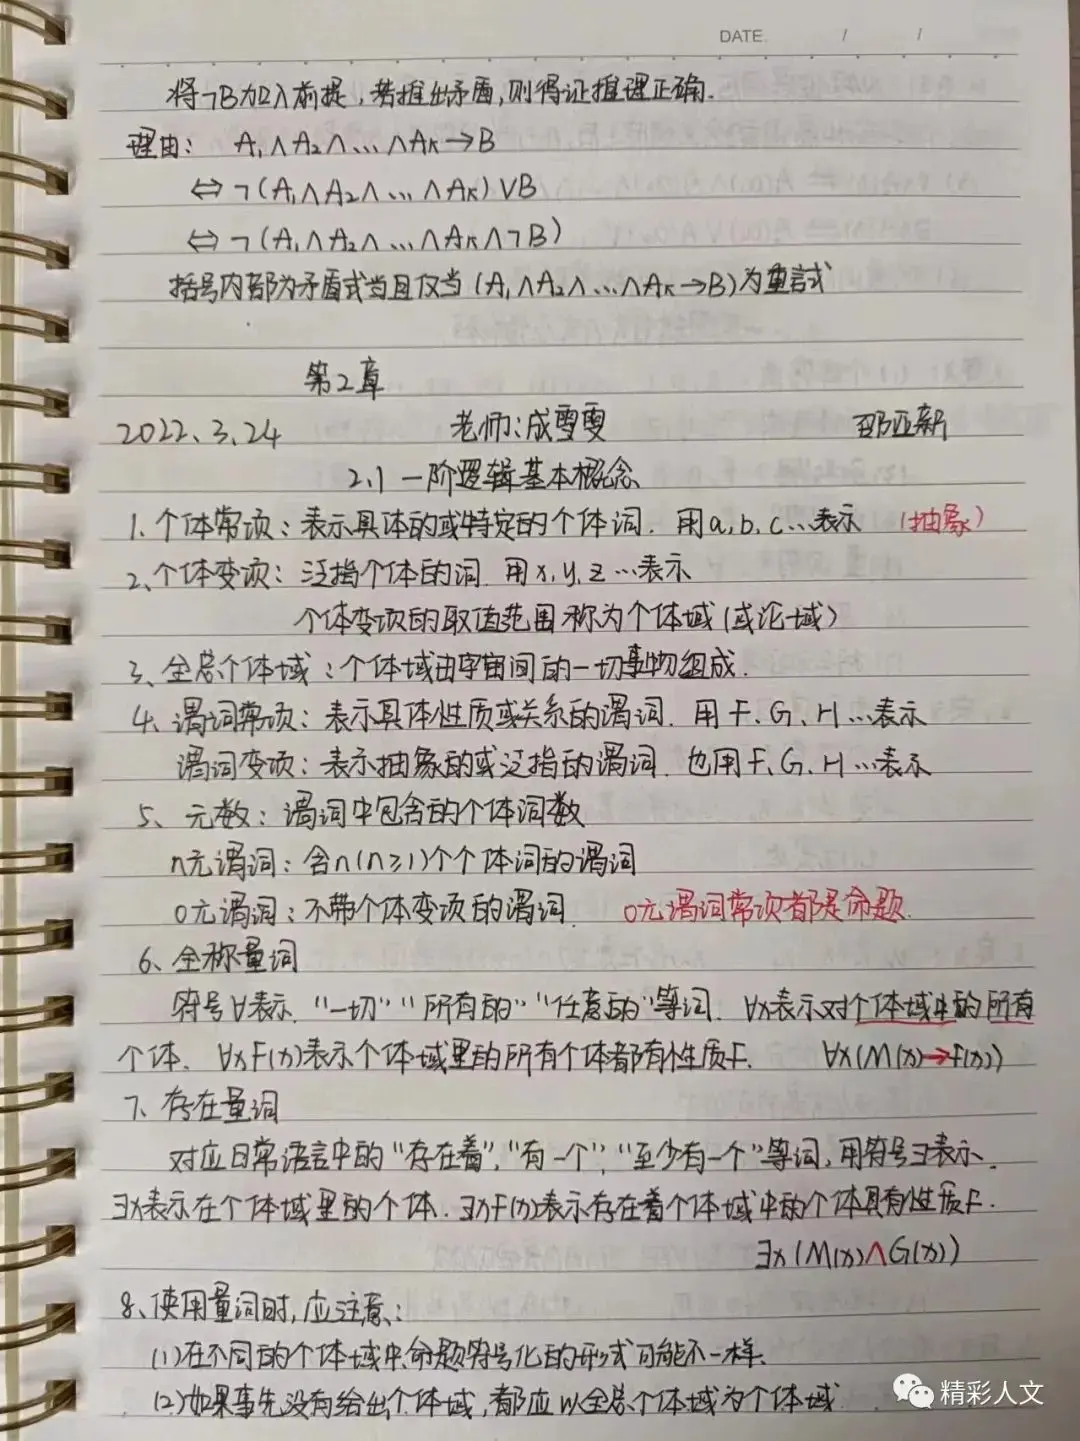 DATE. / /
将¬B加入前提，若推出矛盾，则得证推理正确.
理由： A₁∧A₂∧…∧Aₖ→B
⇔¬(A₁∧A₂∧…∧Aₖ)∨B
⇔¬(A₁∧A₂∧…∧Aₖ∧¬B)
括号内部为矛盾式当且仅当 (A₁∧A₂∧…∧Aₖ→B)为重言式
第2章
2022、3、24 老师：成雪雯 邵亚新
2.1 一阶逻辑基本概念
1. 个体常项：表示具体的或特定的个体词. 用a, b, c…表示 (抽象)
2、个体变项：泛指个体的词. 用x, y, z…表示
个体变项的取值范围称为个体域(或论域)
3、全总个体域：个体域由宇宙间的一切事物组成.
4、谓词常项：表示具体性质或关系的谓词. 用F、G、H…表示
谓词变项：表示抽象的或泛指的谓词. 也用F、G、H…表示
5、元数：谓词中包含的个体词数
n元谓词：含n(n≥1)个个体词的谓词
0元谓词：不带个体变项的谓词. 0元谓词常项都是命题.
6、全称量词
符号∀表示. “一切”“所有的”“任意的”等词. ∀x表示对个体域中的所有
个体. ∀xF(x)表示个体域里的所有个体都有性质F. ∀x(M(x)→F(x))
7、存在量词
对应日常语言中的“存在着”，“有一个”，“至少有一个”等词，用符号∃表示.
∃x表示在个体域里的个体. ∃xF(x)表示存在着个体域中的个体具有性质F.
∃x(M(x)∧G(x))
8、使用量词时，应注意：
(1)在不同的个体域中，命题符号化的形式可能不一样.
(2)如果事先没有给出个体域，都应以全总个体域为个体域.
精彩人文